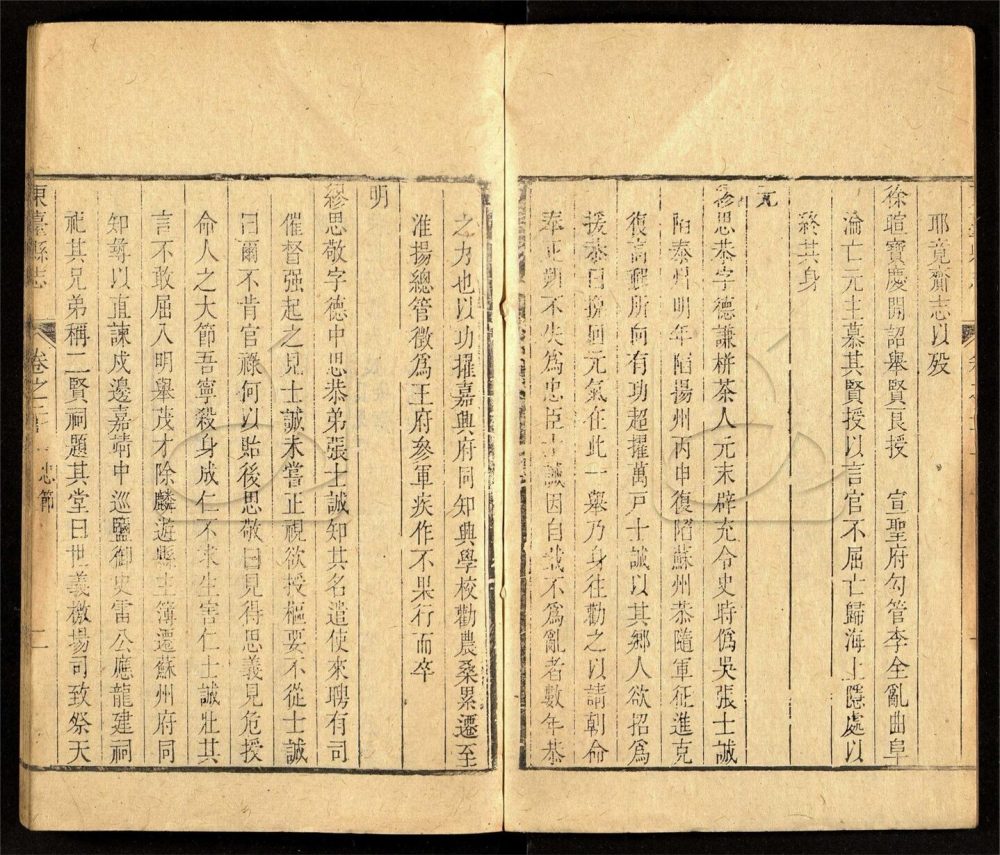 耶竟齎志以歿
徐暄寶慶開詔舉賢良授　宣聖府勾管李全亂曲阜
淪亡元主慕其賢授以言官不屈亡歸海上隱處以
終其身
元
繆思恭字德謙栟茶人元末辟充令史時僞吳張士誠
陷泰州明年陷揚州丙申復陷蘇州恭隨軍征進克
復高郵所向有功超擢萬戸士誠以其鄉人欲招爲
援恭曰挽囘元氣在此一舉乃身往勸之以請朝命
奉正朔不失爲忠臣士誠因自戢不爲亂者數年恭
之力也以功擢嘉興府同知興學校勸農桑累遷至
淮揚總管徵爲王府參軍疾作不果行而卒
明
繆思敬字德中思恭弟張士誠知其名遣使來聘有司
催督强起之見士誠未嘗正視欲授樞要不從士誠
曰爾不肯官祿何以貽後思敬曰見得思義見危授
命人之大節吾寧殺身成仁不求生害仁士誠壯其
言不敢屈入明舉茂才除麟遊縣主簿遷蘇州府同
知尋以直諫戍邊嘉靖中巡鹽御史雷公應龍建祠
祀其兄弟稱二賢祠題其堂曰世義檄場司致祭天
東臺縣志　卷之二　忠節　二